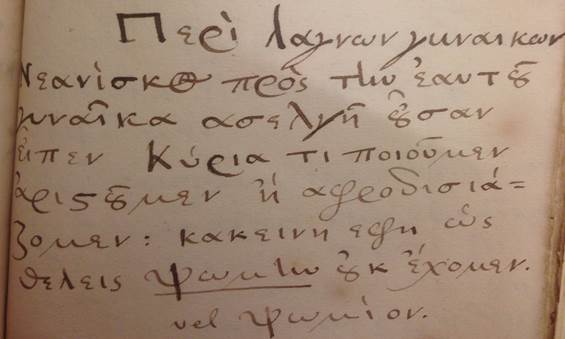 Περὶ λαγνων γυναικων
Νεανίσκος πρὸς τὴν ἑαυτοῦ
γυναῖκα ασελγῆ οὖσαν
εἶπεν Κύρια τι ποιοῦμεν
ἀριστοῦμεν ἢ αφροδισιά=
ζομεν: κακεινη εφη ὡς
θελεις ψωκτὴν οὐκ ἔχομεν.
vel ψωκίον.